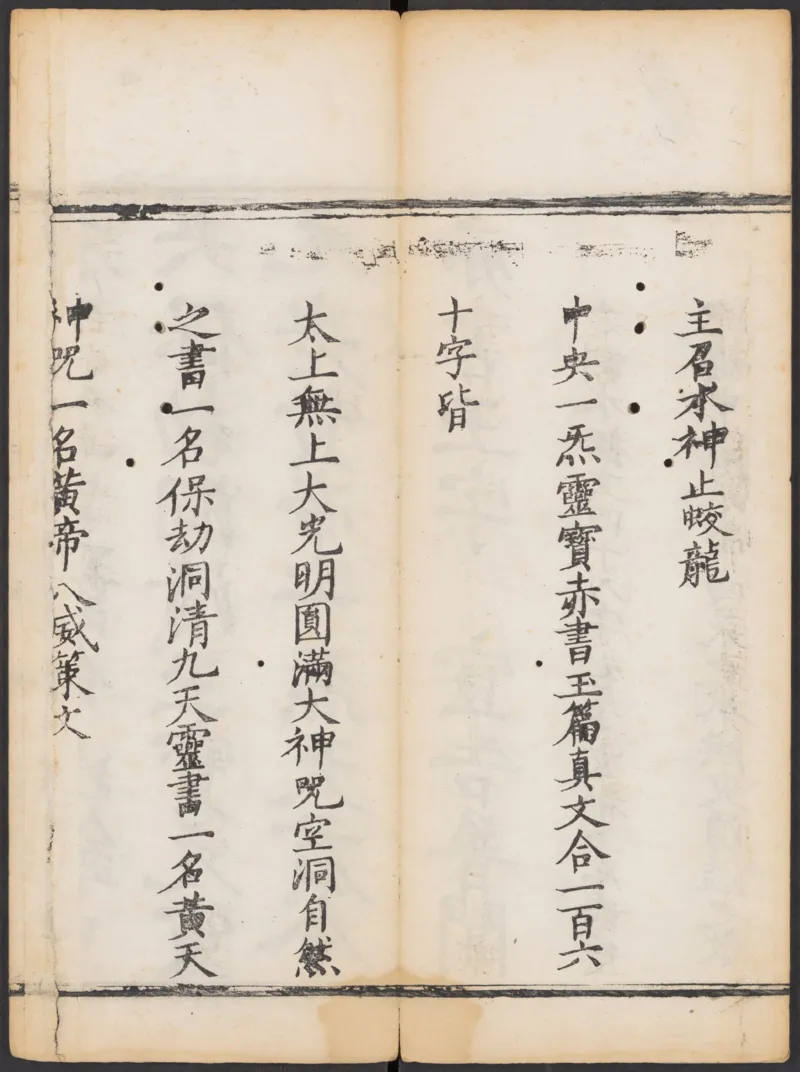 主召水神止蛟龍
中央一炁靈寶赤書玉篇真文合一百六
十字皆
太上無上大光明圓滿大神咒空洞自然
之書一名保劫洞清九天靈書一名黃天
神咒一名黃帝八威策文